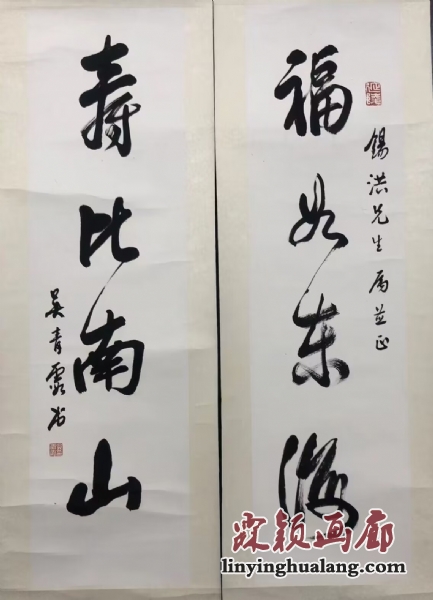 福如東海
錫洪先生属並正
寿比南山
吴青霞书
霖颖画廊
linyinghualang.com